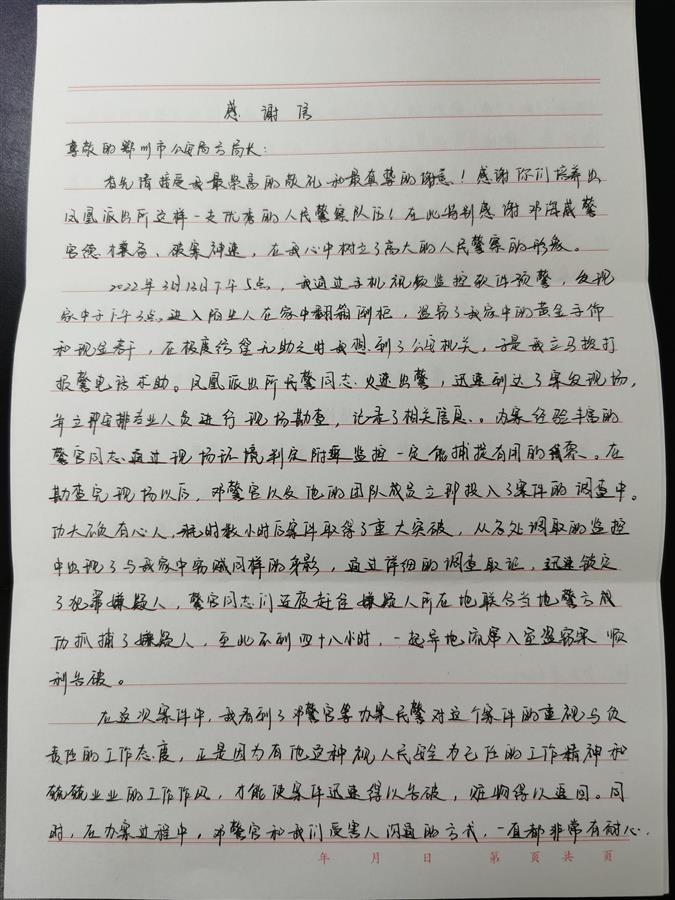 感谢信
尊敬的鄂州市公安局方局长：
首先请接受我最崇高的敬礼和最真挚的谢意！感谢你们培养出
凤凰派出所这样一支优秀的人民警察队伍！在此特别感谢邓海威警
官德才兼备、破案神速，在我心中树立了高大的人民警察的形象。
2022年3月13日下午5点，我通过手机视频监控软件预警，发现
家中于下午3点进入陌生人在家中翻箱倒柜，盗窃了我家中的黄金手饰
和现金若干，在极度绝望无助之时我想到了公安机关，于是我立马拨打
报警电话求助。凤凰派出所民警同志火速出警，迅速到达了案发现场，
并立即安排专业人员进行现场勘查，记录了相关信息。办案经验丰富的
警官同志通过现场环境判定附近监控一定能捕捉有用的线索。在
勘查完现场以后，邓警官以及他的团队成员立即投入了案件的调查中。
功夫不负有心人，耗时数小时后案件取得了重大突破，从多处调取的监控
中出现了与我家中窃贼同样的身影，通过详细的调查取证，迅速锁定
了犯罪嫌疑人，警官同志们连夜赶往嫌疑人所在地联合当地警方成
功抓捕了嫌疑人，至此不到四十八小时，一起异地流窜入室盗窃案顺
利告破。
在这次案件中，我看到了邓警官等办案民警对这个案件的重视与负
责任的工作态度，正是因为有他这种视人民安全为己任的工作精神和
兢兢业业的工作作风，才能使案件迅速得以告破，赃物得以返回。同
时，在办案过程中，邓警官和我们受害人沟通的方式，一直都非常有耐心，
年 月 日 第 页 共 页